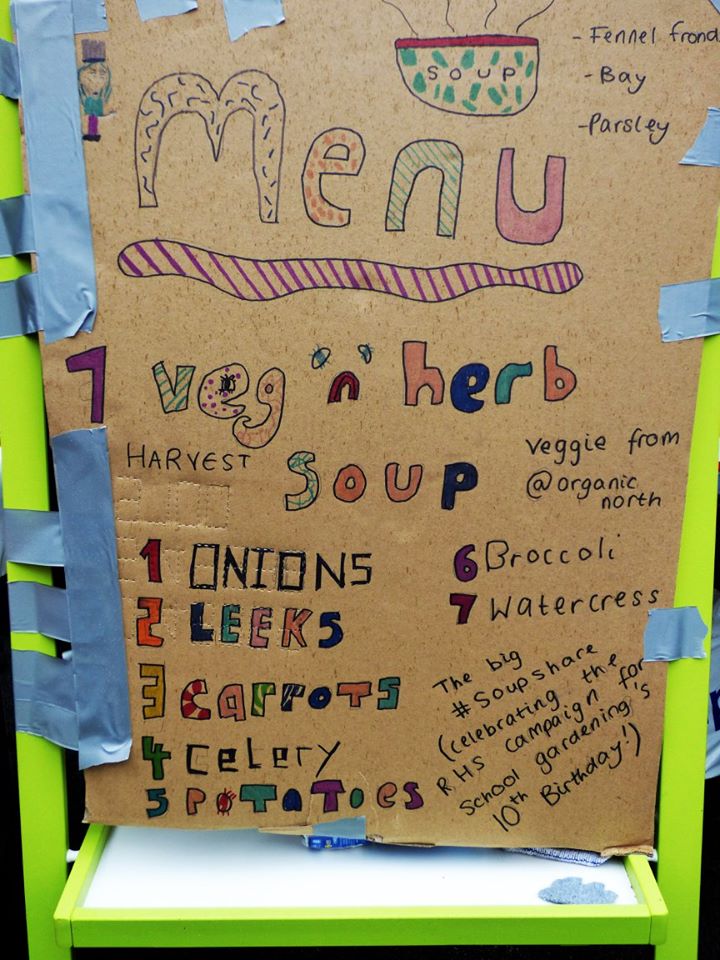 SOUP
- Fennel frond
- Bay
- Parsley
Menu
7 veg 'n' herb
HARVEST SOUP
veggie from
@organic
north
1 ONIONS
2 LEEKS
3 carrots
4 celery
5 POTATOES
6 Broccoli
7 Watercress
The big
#Soupshare
(celebrating the
RHS campaign for
school gardening's
10th Birthday!)